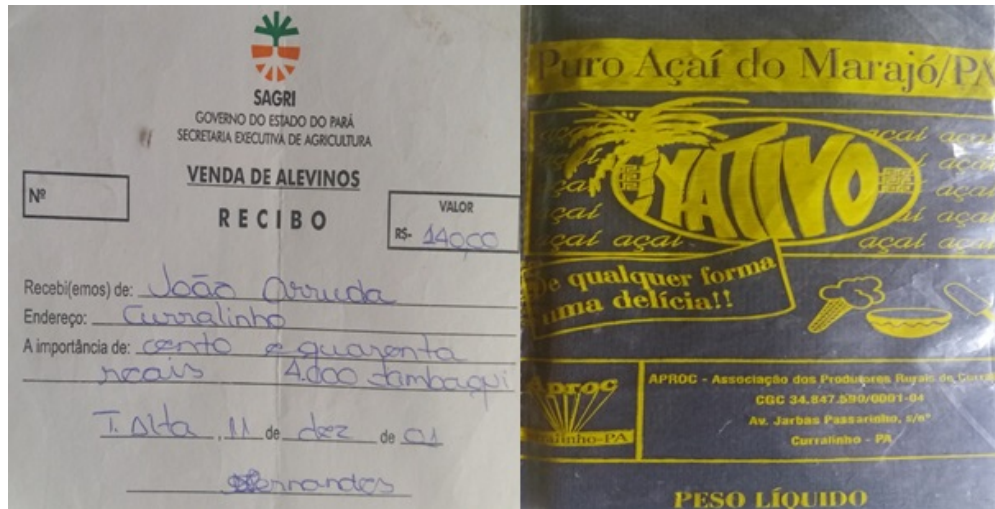 SAGRI
GOVERNO DO ESTADO DO PARÁ
SECRETARIA EXECUTIVA DE AGRICULTURA
VENDA DE ALEVINOS
Nº
RECIBO
VALOR
R$- 140,00
Recebi(emos) de: João Arruda
Endereço: Curralinho
A importância de: cento e quarenta
reais 4.000 tambaqui
T. Alta, 11 de dez de 01
Puro Açaí do Marajó/PA
açaí açaí
YATIVO
açaí açaí
De qualquer forma
uma delícia!!
Aproc
Curralinho-PA
APROC - Associação dos Produtores Rurais de
CGC 34.847.590/0001-04
Av. Jarbas Passarinho, s/nº
Curralinho - PA
PESO LÍQUIDO